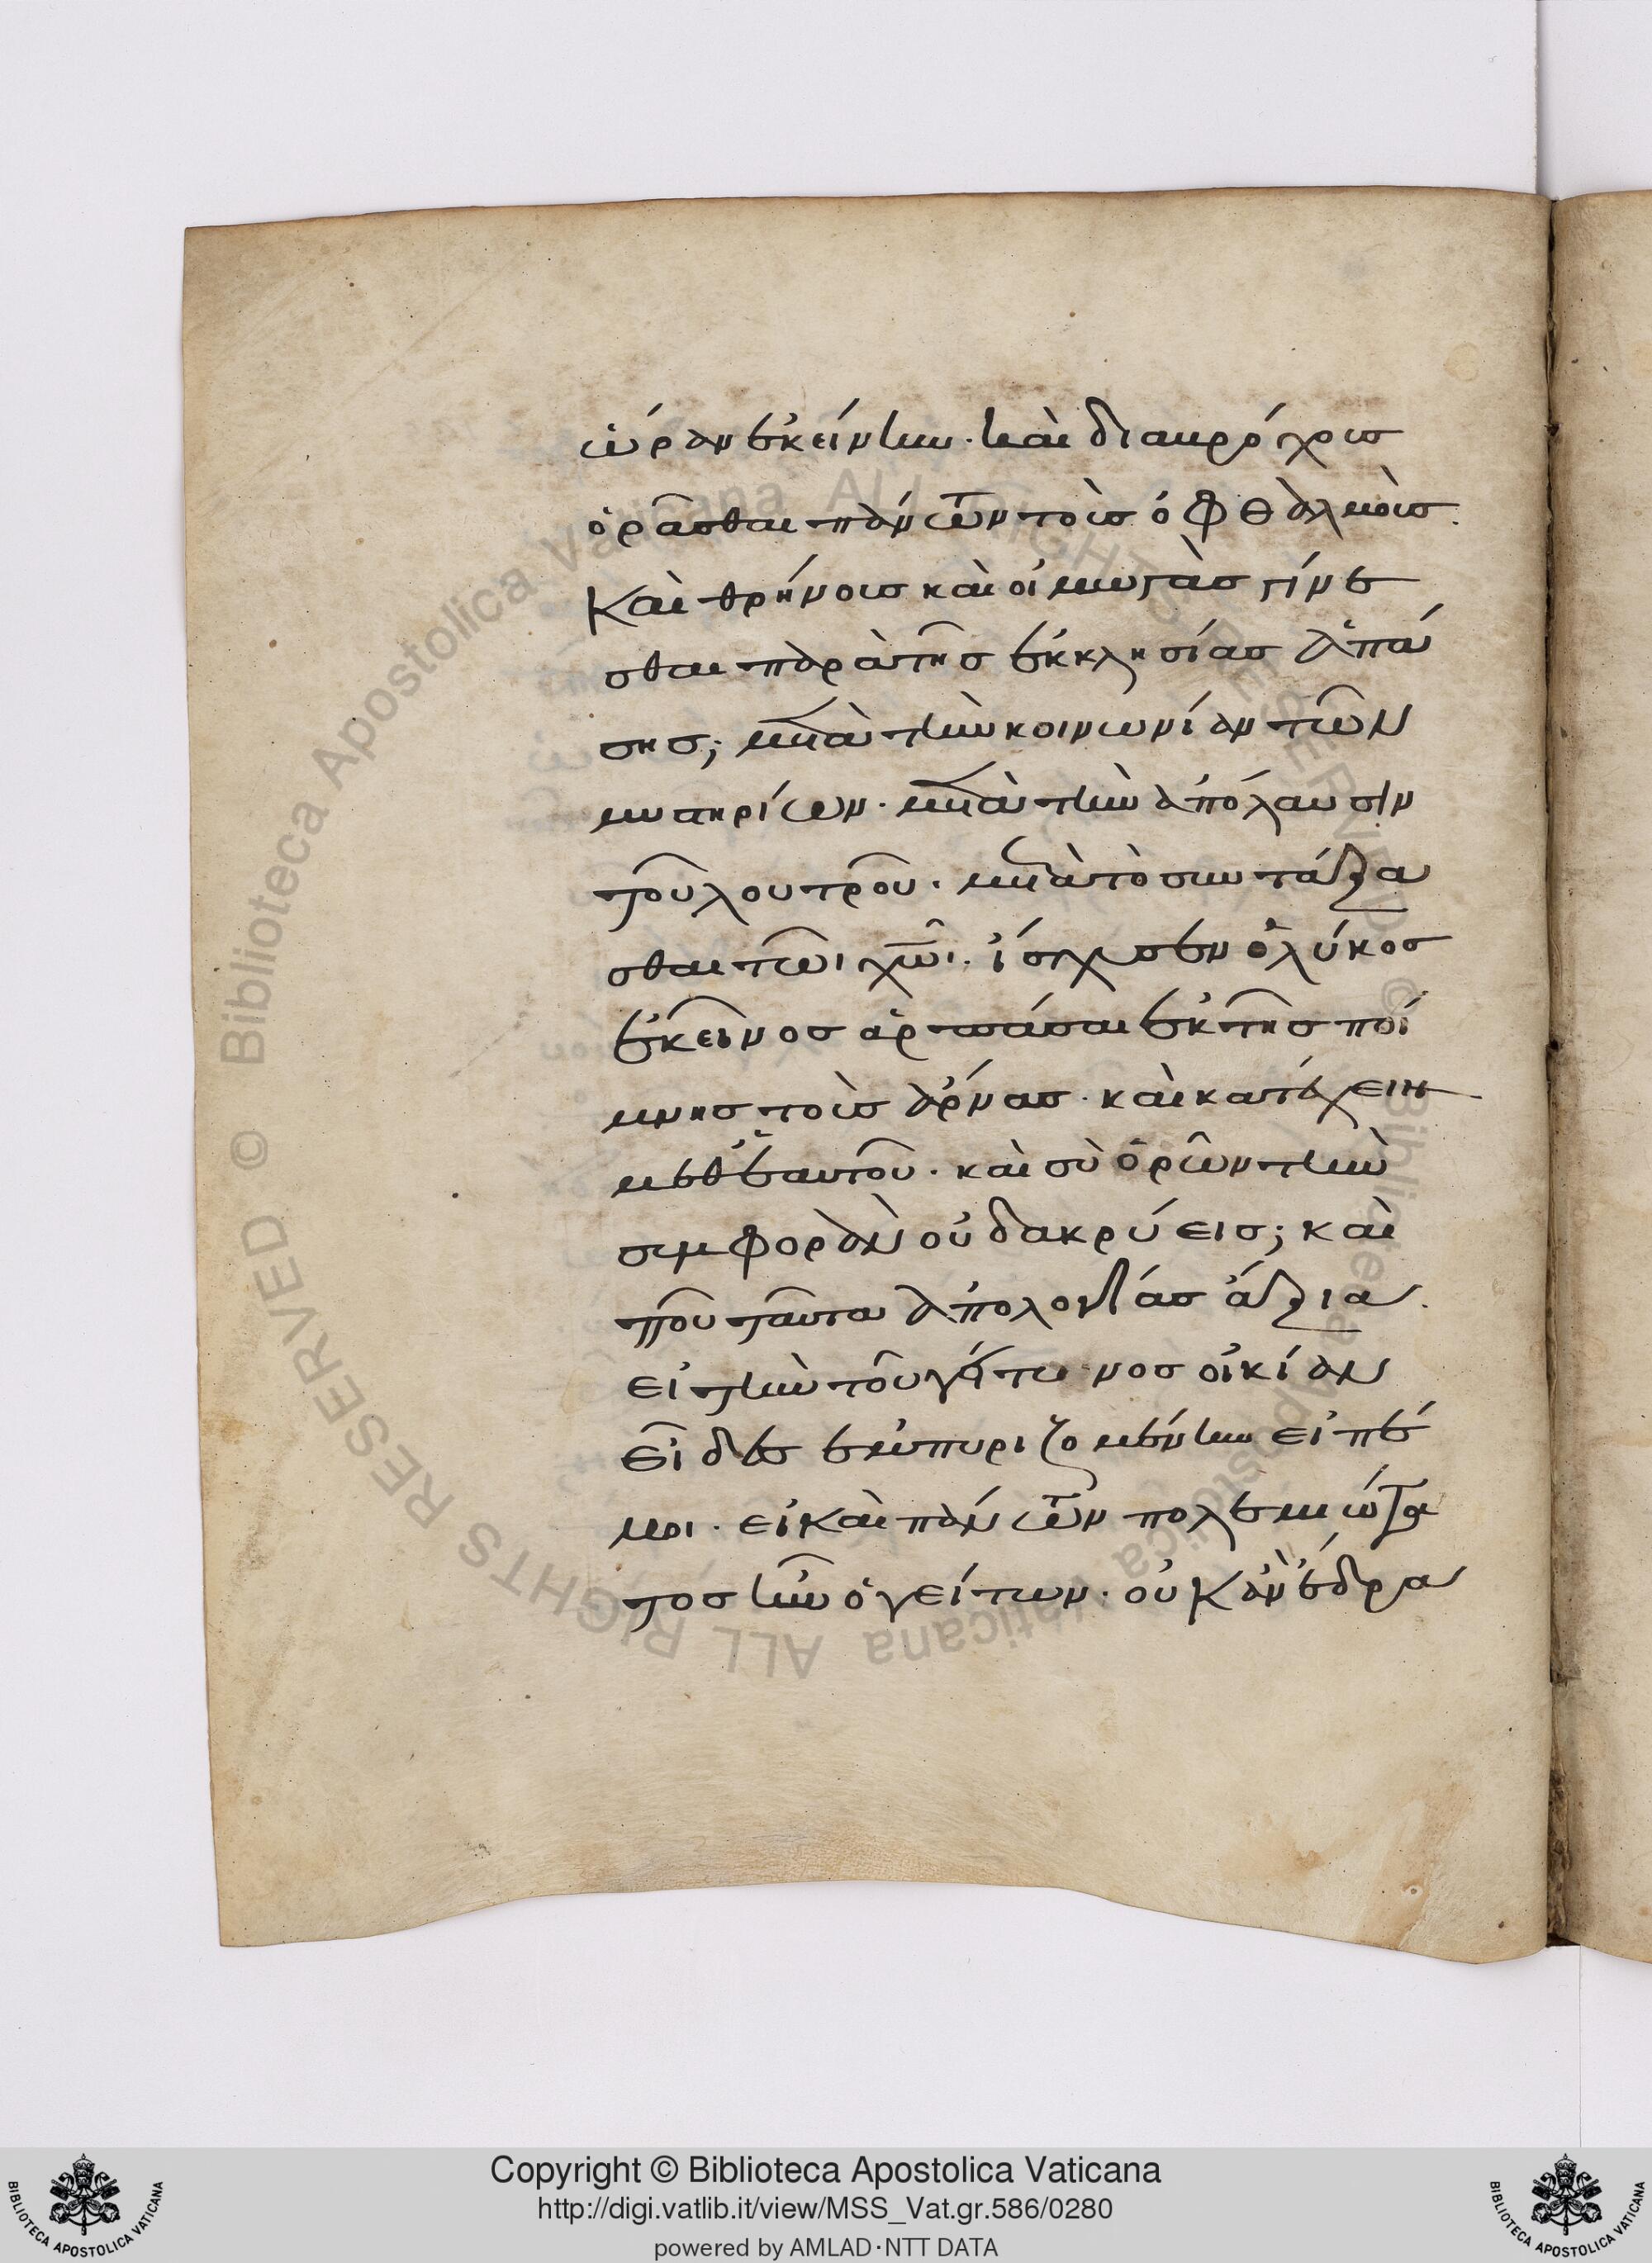 ὥραν ἐκείνην. καὶ διακρόχοις
ὁρᾶσθαι πάντων τοὺς ὀφθαλμοὺς.
Καὶ θρήνους καὶ οἰμωγὰς γίνε
σθαι παρὰ τῆς ἐκκλησίας ἁπά
σης; μετὰ τὴν κοινωνίαν τῶν
μυστηρίων. μετὰ τὴν ἀπόλαυσιν
τοῦ λουτροῦ. μετὰ τὸ συντάξα
σθαι τῶι χῶι. ἴσχυσεν ὁ λύκος
ἐκεῖνος ἁρπάσαι ἐκ τῆς ποί
μνης τοὺς ἄρνας. καὶ κατέχειν
μεθ ἑαυτοῦ. καὶ σὺ ὁρῶν τὴν
συμφορὰν οὐ δακρύεις; καὶ
ποῦ ταῦτα ἀπολογίας ἄξια.
εἰ τὴν τοῦ γείτονος οἰκίαν
εἶδες ἐμπυριζομένην εἰπέ
μοι. εἰ καὶ πάντων πολεμιώτα
τος ἦν ὁ γείτων. οὐκ ἂν ἔδρα
Copyright © Biblioteca Apostolica Vaticana
http://digi.vatlib.it/view/MSS_Vat.gr.586/0280
powered by AMLAD·NTT DATA
BIBLIOTECA APOSTOLICA VATICANA
BIBLIOTECA APOSTOLICA VATICANA
© Biblioteca Apostolica Vaticana ALL RIGHTS RESERVED © Biblioteca Apostolica Vaticana ALL RIGHTS RESERVED